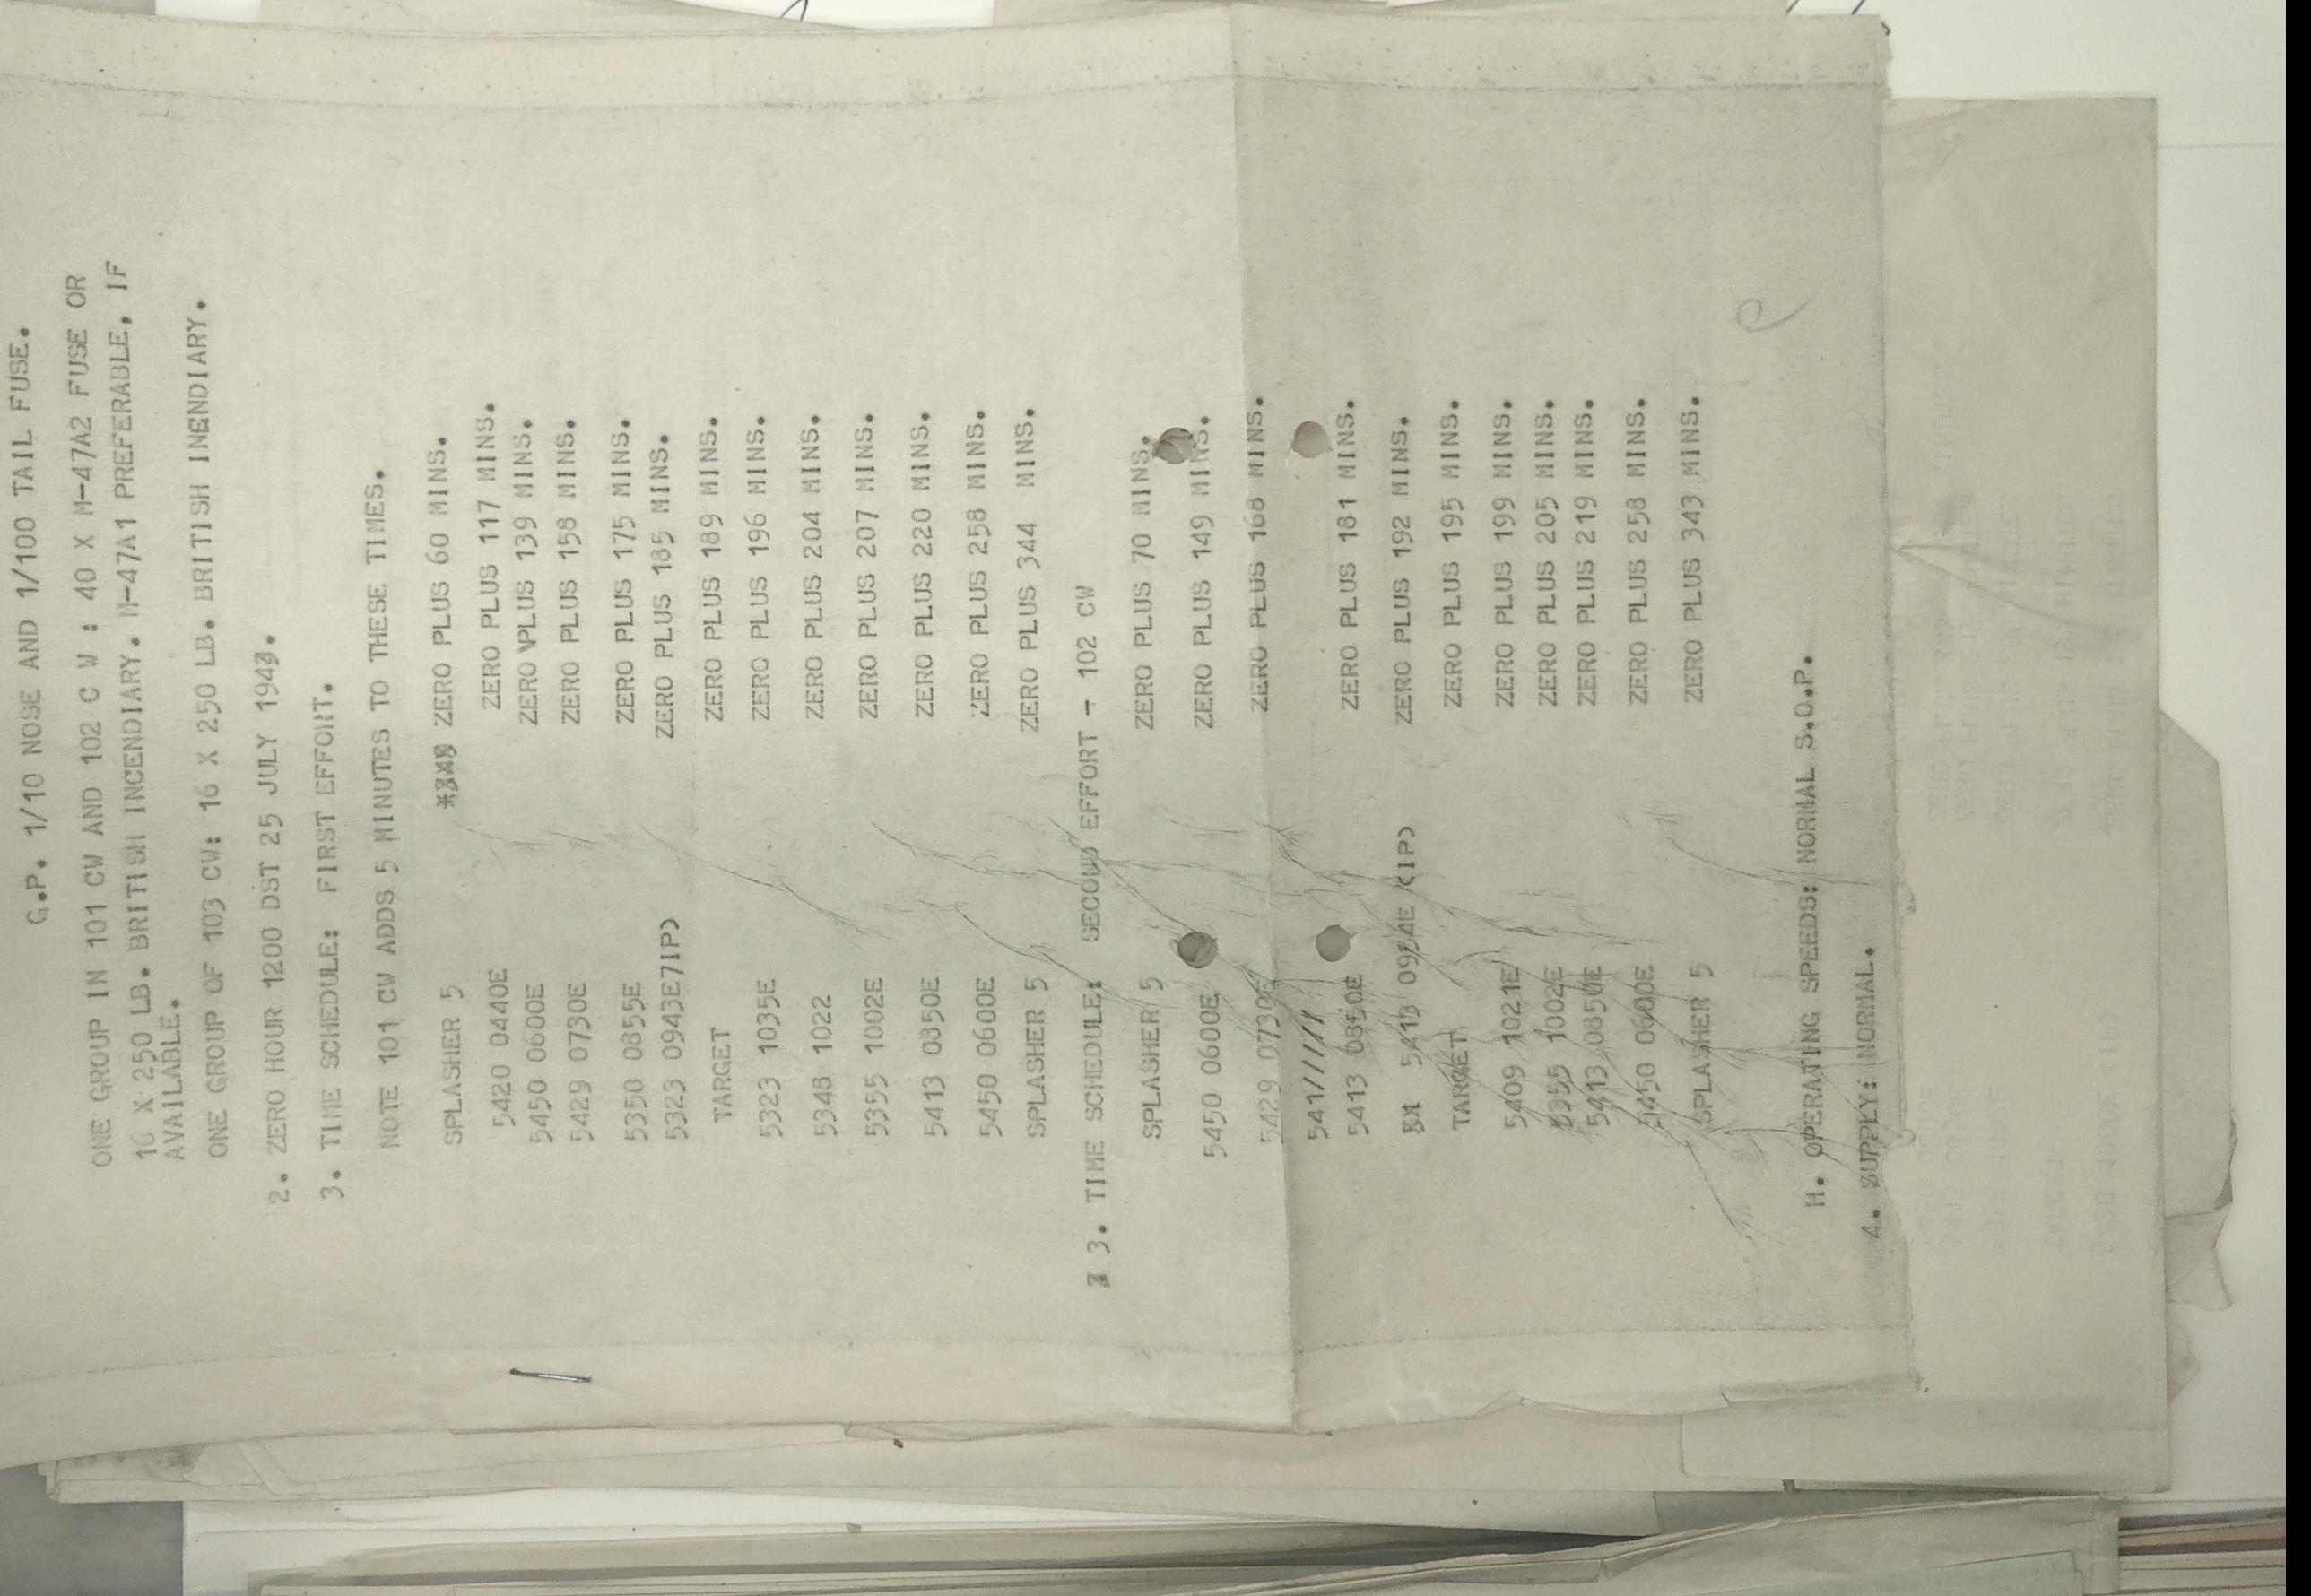 G.P. 1/10 NOSE AND 1/100 TAIL FUSE.
ONE GROUP IN 101 CW AND 102 C W : 40 X M-47A2 FUSE OR
16 X 250 LB. BRITISH INCENDIARY. M-47A1 PREFERABLE, IF
AVAILABLE.
ONE GROUP OF 103 CW: 16 X 250 LB. BRITISH INENDIARY.
2. ZERO HOUR 1200 DST 25 JULY 1943.
3. TIME SCHEDULE: FIRST EFFORT.
NOTE 101 CW ADDS 5 MINUTES TO THESE TIMES.
SPLASHER 5 ZERO PLUS 60 MINS.
5420 0440E ZERO PLUS 117 MINS.
5450 0600E ZERO PLUS 139 MINS.
5429 0730E ZERO PLUS 158 MINS.
5350 0855E ZERO PLUS 175 MINS.
5323 0943E7IP) ZERO PLUS 185 MINS.
TARGET ZERO PLUS 189 MINS.
5323 1035E ZERO PLUS 196 MINS.
5348 1022 ZERO PLUS 204 MINS.
5355 1002E ZERO PLUS 207 MINS.
5413 0850E ZERO PLUS 220 MINS.
5450 0600E ZERO PLUS 258 MINS.
SPLASHER 5 ZERO PLUS 344 MINS.
3. TIME SCHEDULE: SECOND EFFORT - 102 CW
SPLASHER 5 ZERO PLUS 70 MINS.
5450 0600E ZERO PLUS 149 MINS.
5429 0730E ZERO PLUS 168 MINS.
541/////
5413 0850E ZERO PLUS 181 MINS.
5413 (IP) ZERO PLUS 192 MINS.
TARGET ZERO PLUS 195 MINS.
5409 1021E ZERO PLUS 199 MINS.
5355 1002E ZERO PLUS 205 MINS.
5413 0850E ZERO PLUS 219 MINS.
5450 0600E ZERO PLUS 258 MINS.
SPLASHER 5 ZERO PLUS 343 MINS.
H. OPERATING SPEEDS: NORMAL S.O.P.
4. SUPPLY: NORMAL.